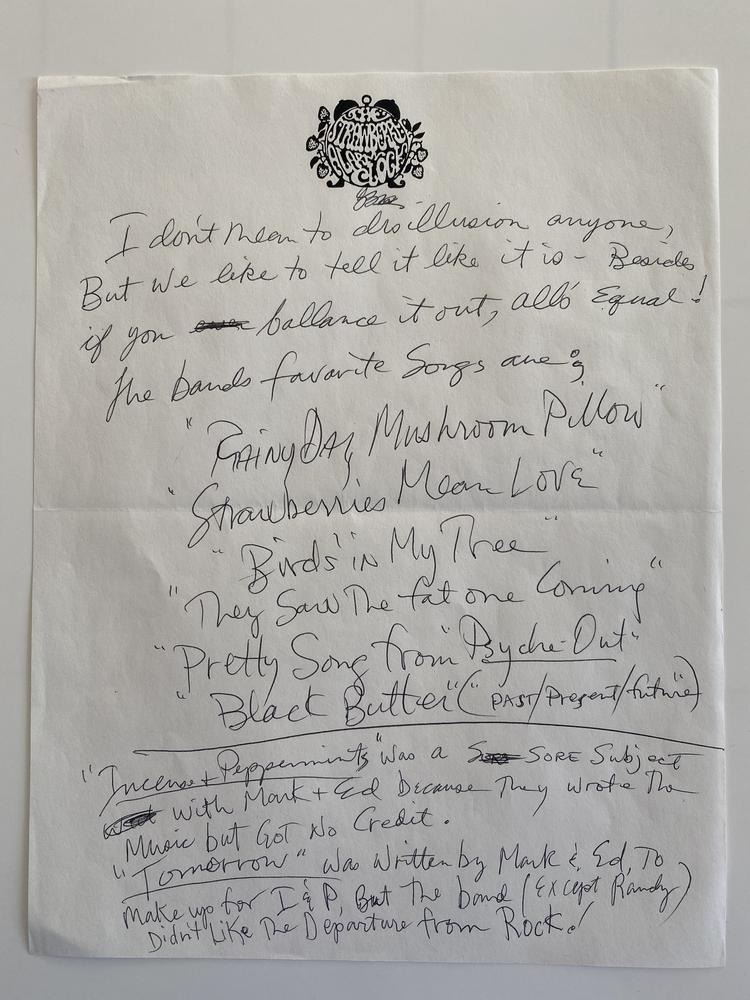 THE
STRAWBERRY
ALARM
CLOCK
I don't mean to disillusion anyone,
But we like to tell it like it is - Besides
if you ballance it out, all's Equal!
The bands favorite Songs are:
"Rainy Day Mushroom Pillow"
"Strawberries Mean Love"
"Birds in My Tree"
"They Saw The fat one Coming"
"Pretty Song from "Psyche-Out"
"Black Butter" ("PAST/Present/future")
"Incense + Peppermints" was a SORE Subject
with Mark + Ed Because They wrote The
Music but Got No Credit.
"Tomorrow" was written by Mark & Ed, To
Make up for I & P, But The band (Except Randy)
Didn't Like The Departure from Rock!